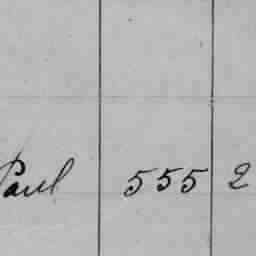 Paul 555 2